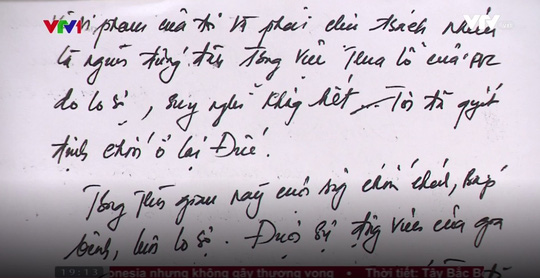 VTV1
VTV
phạm của tôi và phải chịu trách nhiệm
là người đứng đầu trong việc thua lỗ của PVC
do lo sợ, suy nghĩ không hết... Tôi đã quyết
định trốn ở lại Đức.
Trong thời gian này cuộc sống trốn tránh, bấp
bênh, luôn lo sợ. Được sự động viên của gia
19:13 onesia nhưng không gây thương vong • Thời tiết: Tây Bắc Bộ